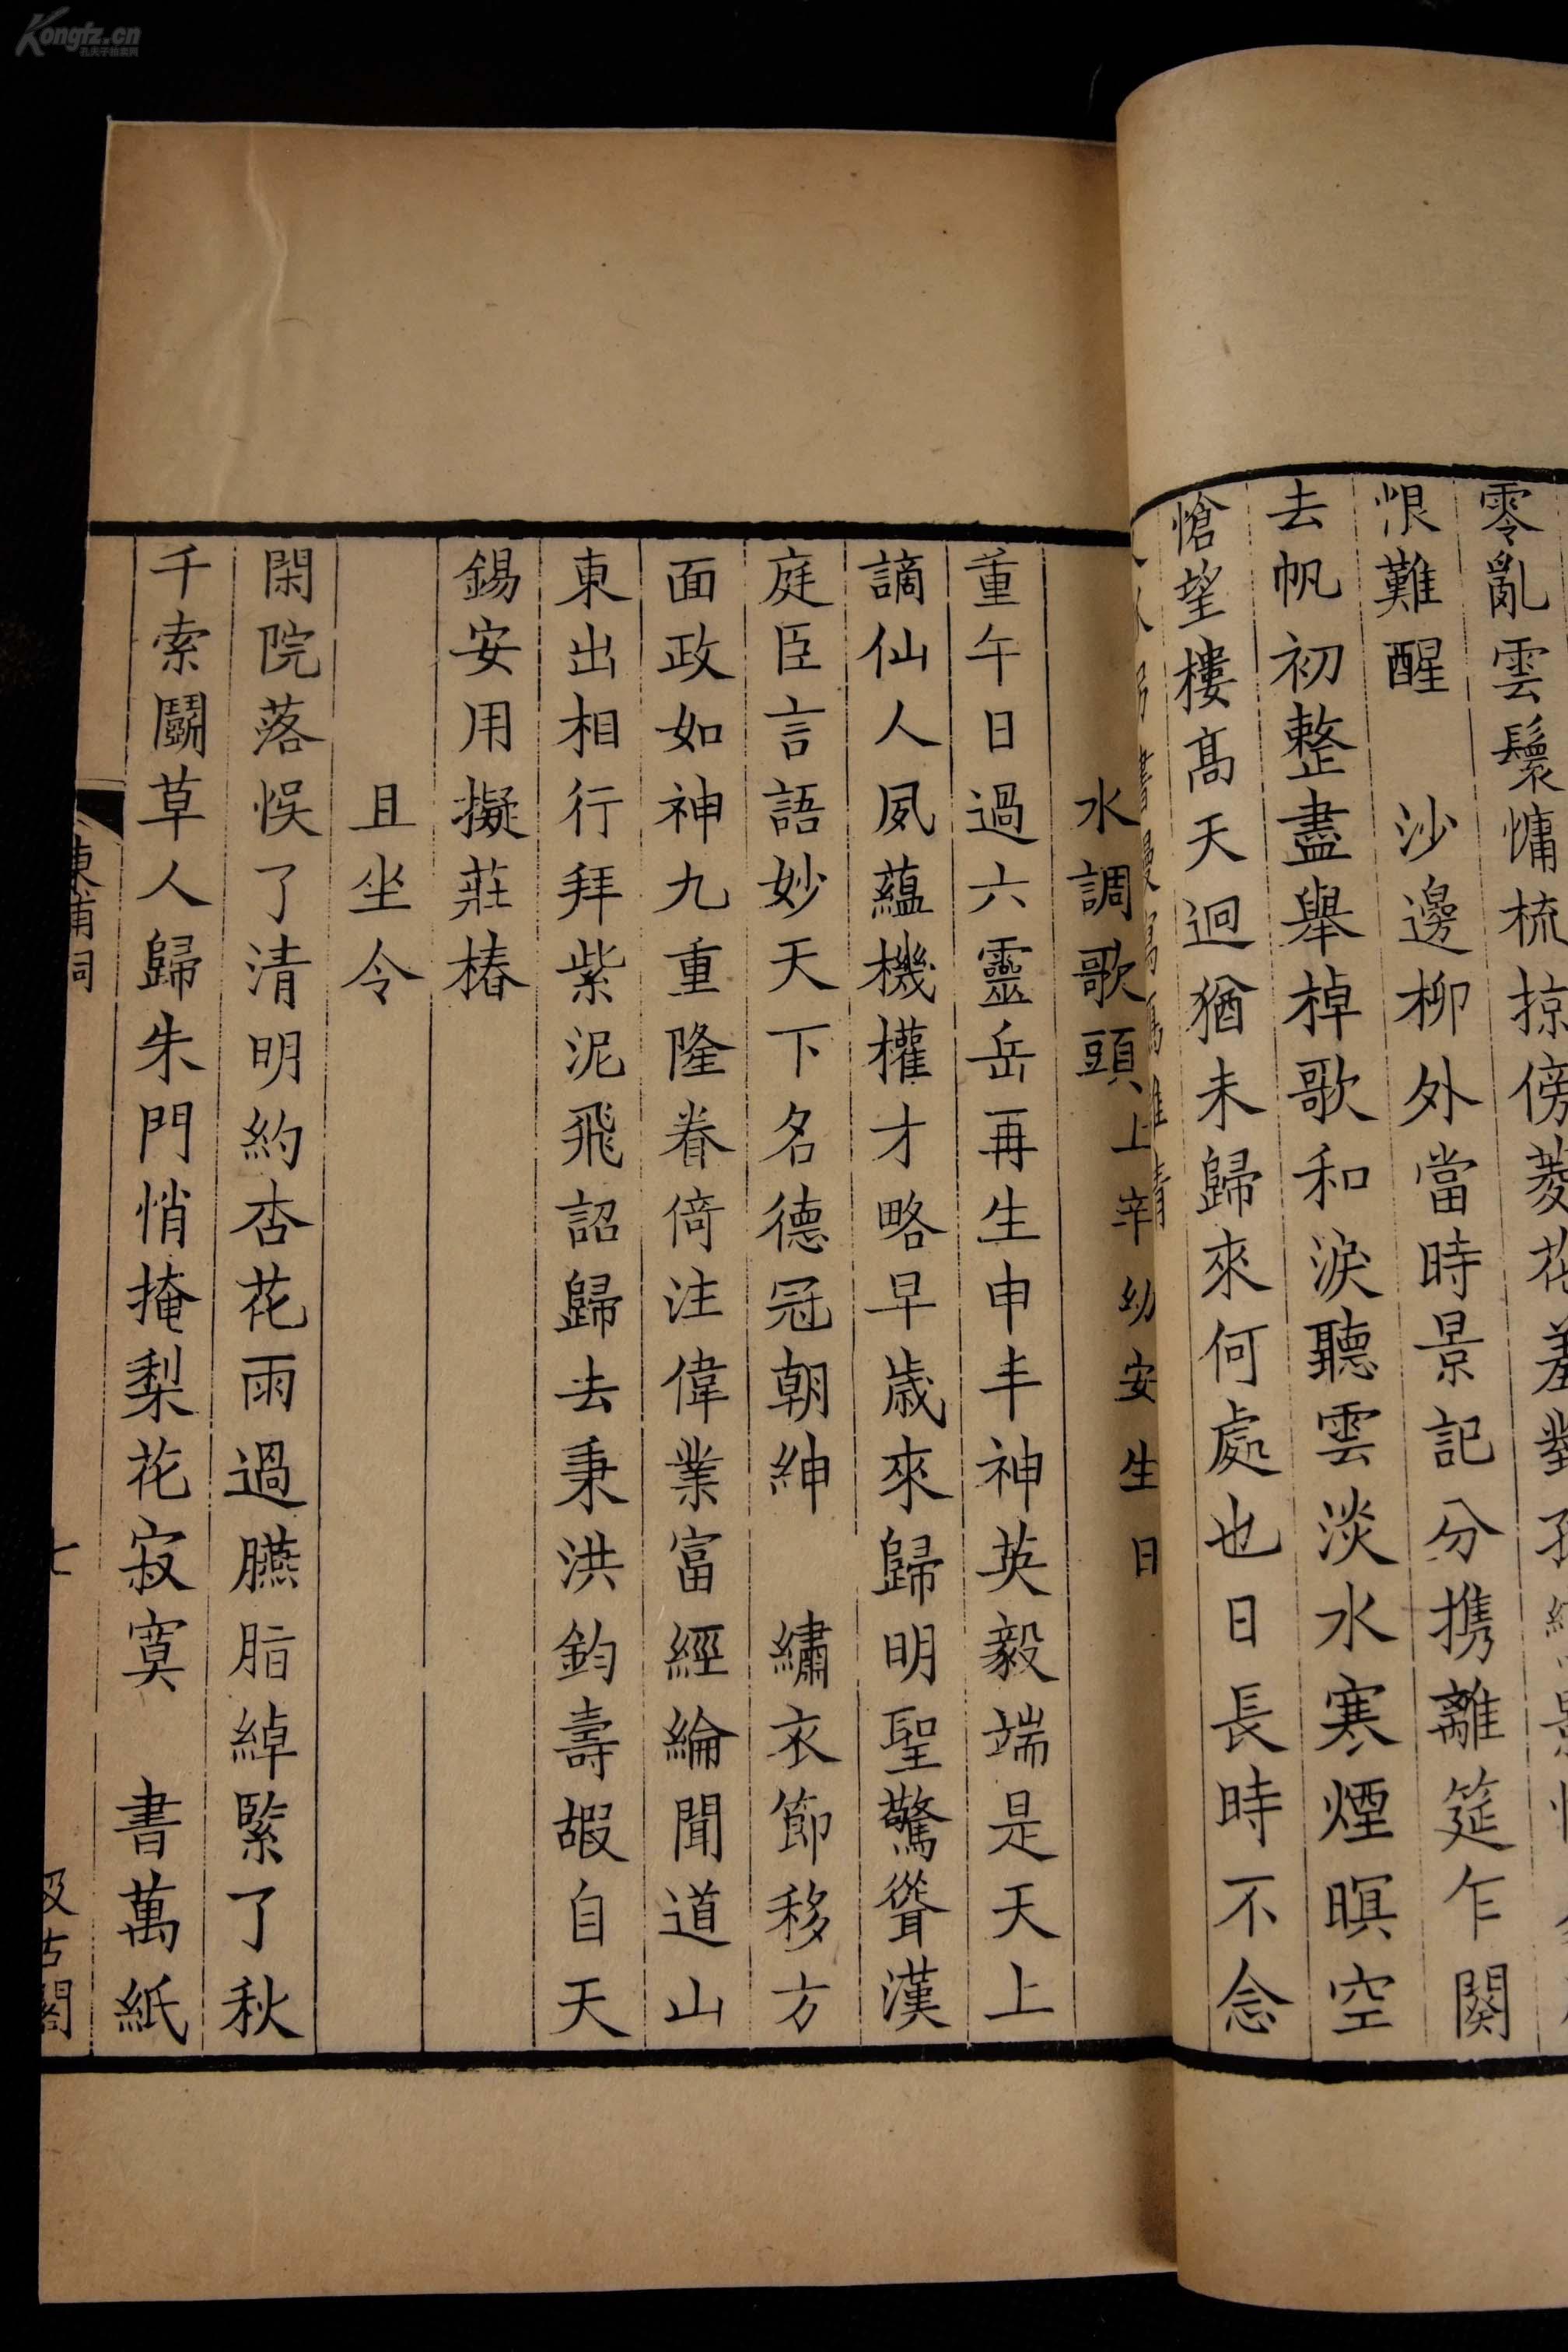 零亂雲鬟慵梳掠傍菱花羞對孤
恨難醒　沙邊柳外當時景記分携離筵乍闋
去帆初整盡舉棹歌和淚聽雲淡水寒煙暝空
愴望樓高天迥猶未歸來何處也日長時不念
水調歌頭上辛幼安生日
重午日過六靈岳再生申丰神英毅端是天上
謫仙人夙蘊機權才略早歲來歸明聖驚聳漢
庭臣言語妙天下名德冠朝紳　繡衣節移方
面政如神九重隆眷倚注偉業富經綸聞道山
東出相行拜紫泥飛詔歸去秉洪鈞壽嘏自天
錫安用擬莊椿
且坐令
閑院落悞了清明約杏花雨過臙脂綽緊了秋
千索鬭草人歸朱門悄掩梨花寂寞　書萬紙
東浦詞
七
汲古閣
Kongfz.cn
孔夫子旧书网